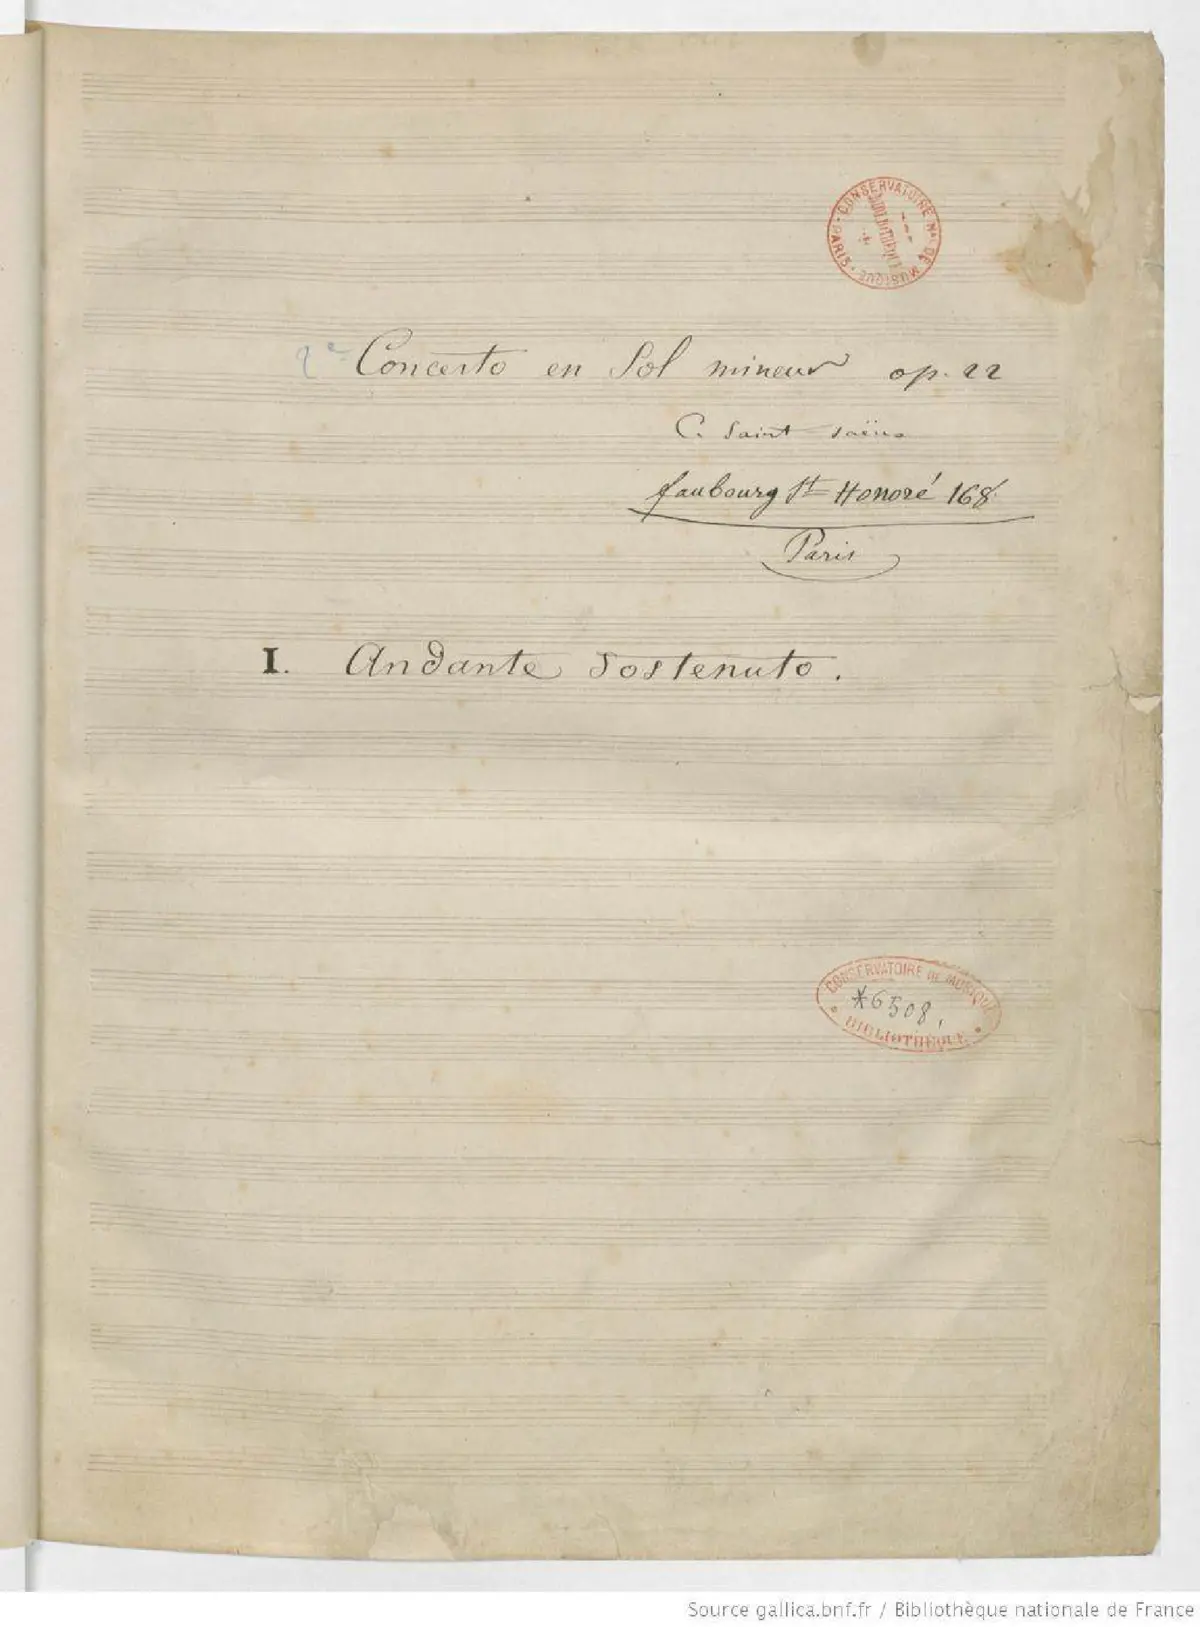 CONSERVATOIRE Nal DE MUSIQUE · PARIS ·
BIBLIOTHÈQUE
2e Concerto en Sol mineur op. 22
C. Saint-Saëns
faubourg St Honoré 168
Paris
I. Andante sostenuto.
CONSERVATOIRE DE MUSIQUE
*6508.
· BIBLIOTHÈQUE ·
Source gallica.bnf.fr / Bibliothèque nationale de France